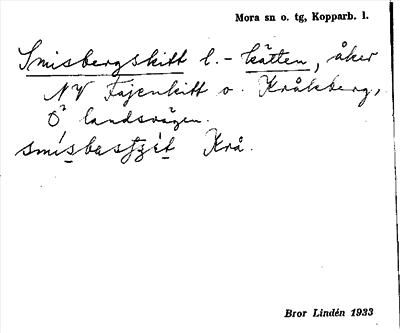 Mora sn o. tg, Kopparb. l.
Smisbergskitt l. - kätten, åker
NV Fajenkitt o. Kråkberg,
Ö landsvägen.
Krå.
Bror Lindén 1933